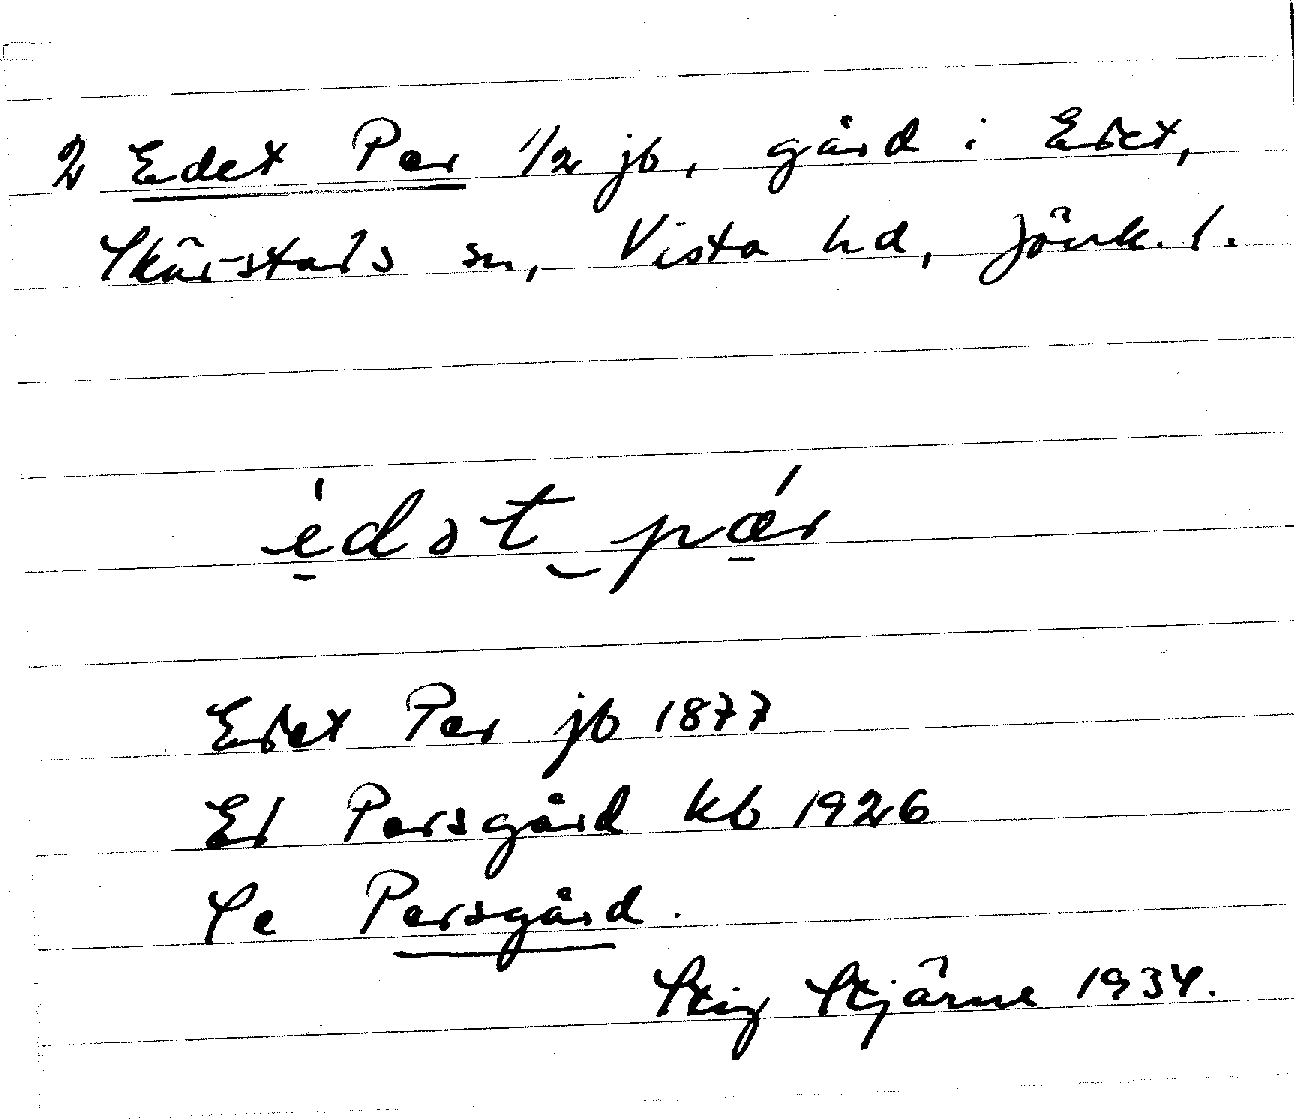 2 Edet Per 1/2 jb, gård i Edet,
Skärstads sn, Vista hd, Jönk. l.
èdət pǽr
Edet Per jb 1877
Ed Persgård kb 1926
Se Persgård.
Stig Stjärne 1934.